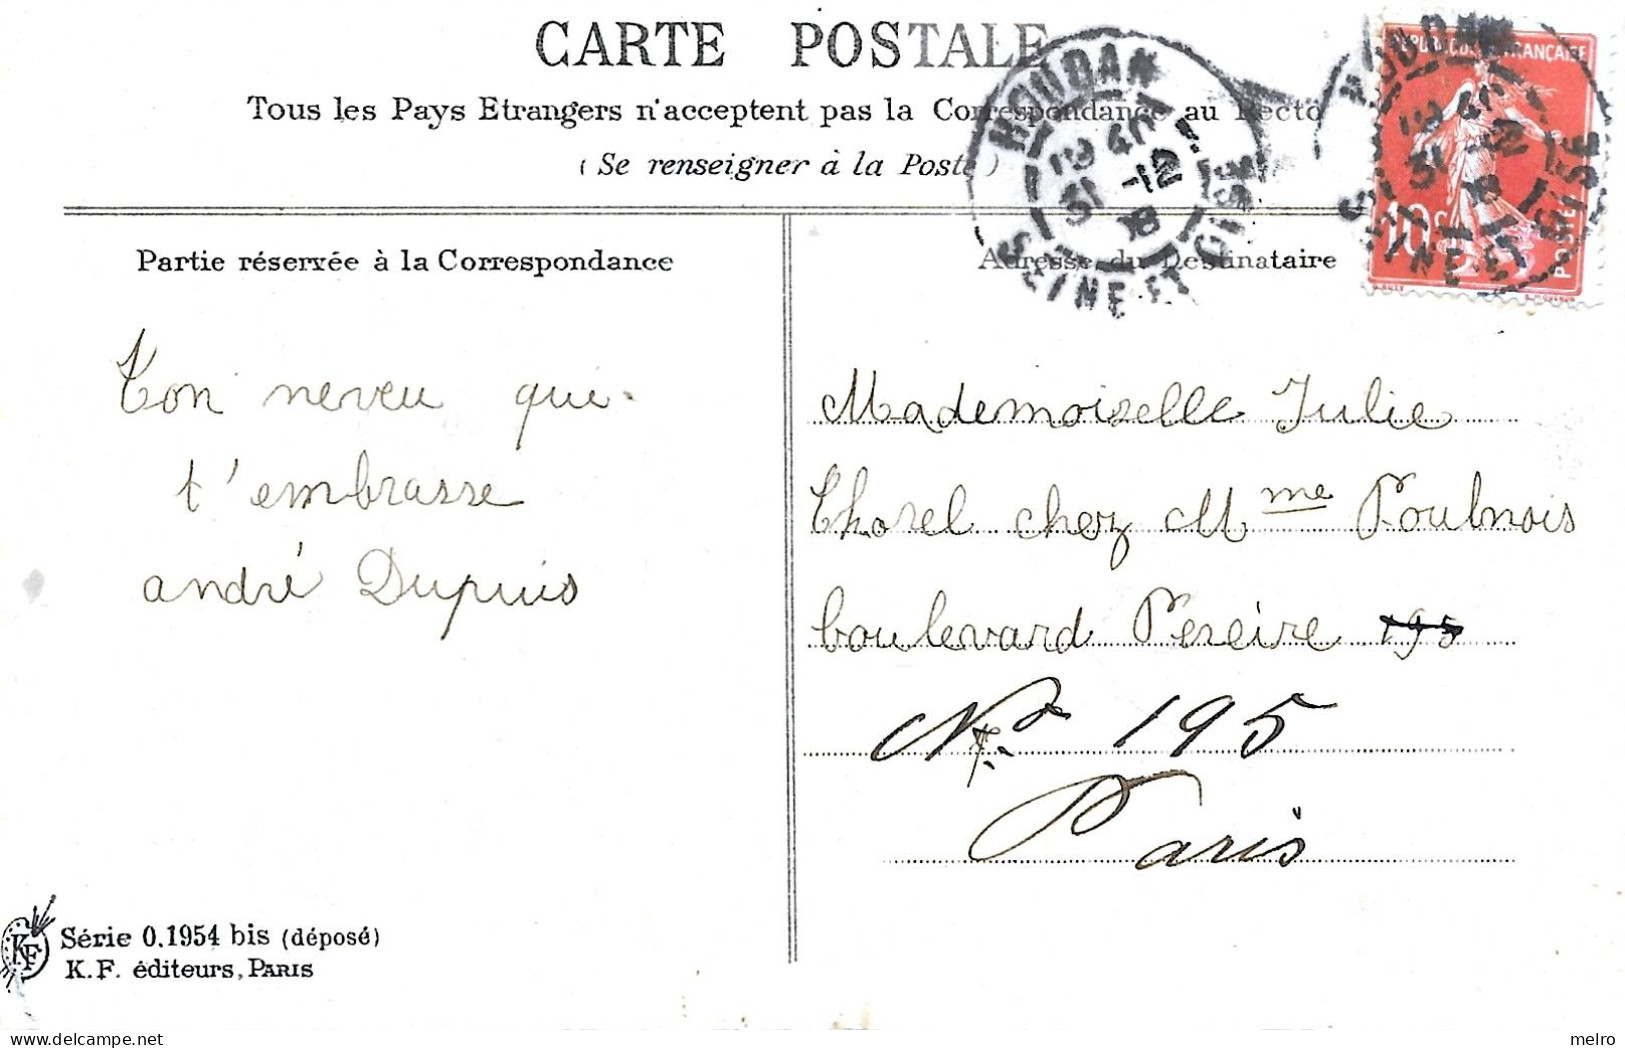 CARTE POSTALE
Tous les Pays Etrangers n'acceptent pas la Correspondance au Recto
(Se renseigner à la Poste)
HOUDAN
19 40
31 -12
18
SEINE ET OISE
HOUDAN
19 40
31 12
SEINE ET OISE
RÉPUBLIQUE FRANÇAISE
10c
POSTES
Partie réservée à la Correspondance
Adresse du Destinataire
Ton neveu qui
t'embrasse
andré Dupuis
Mademoiselle Julie
Thorel chez Mme Poulnois
boulevard Pereire 195
No 195
Paris
KF
Série 0.1954 bis (déposé)
K.F. éditeurs, PARIS
melro